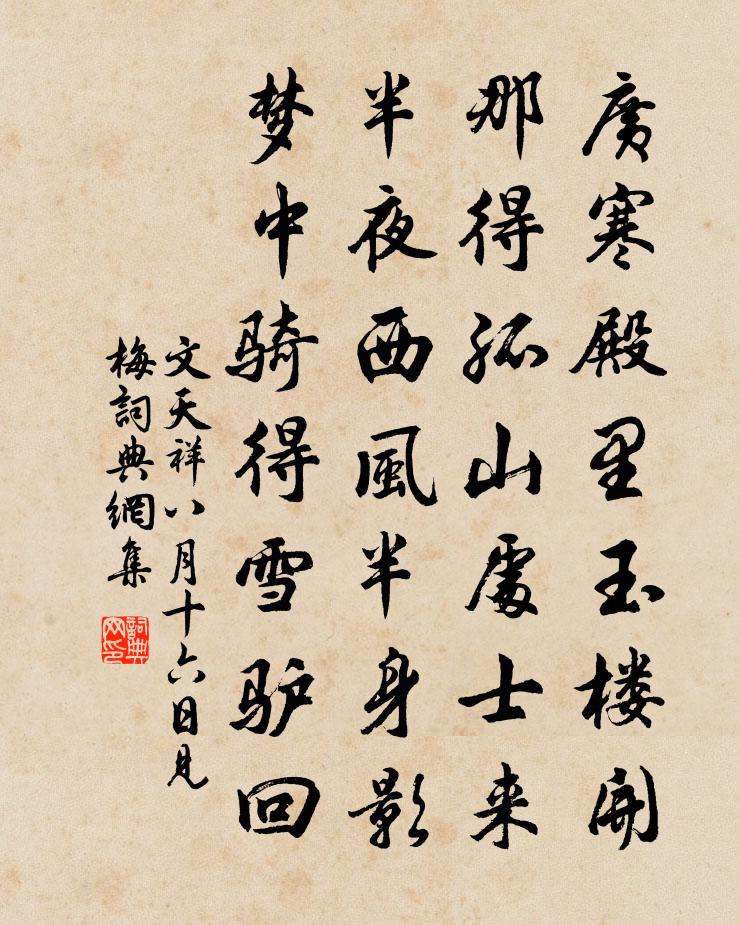 廣寒殿里玉楼開
那得孤山處士来
半夜西風半身影
梦中騎得雪驴回
文天祥八月十六日見
梅詞典網集
詞典
网印